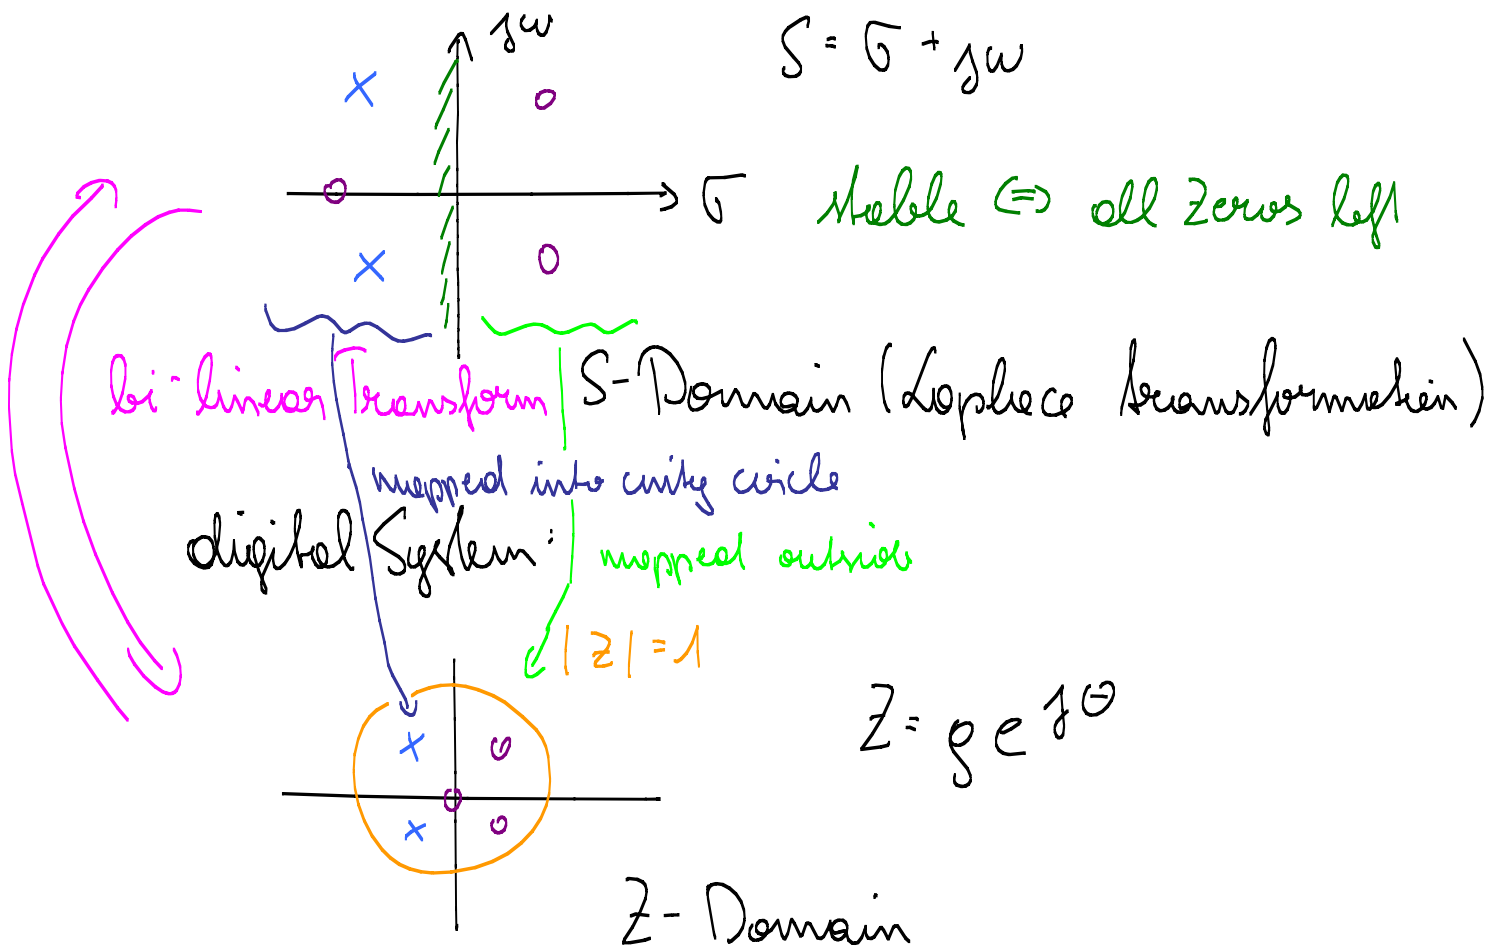 jω
S = σ + jω
σ
stable ⇔ all zeros left
bi-linear Transform
S-Domain (Laplace transformation)
mapped into unity circle
digital System:
mapped outside
|z| = 1
Z = ρe^jθ
Z-Domain